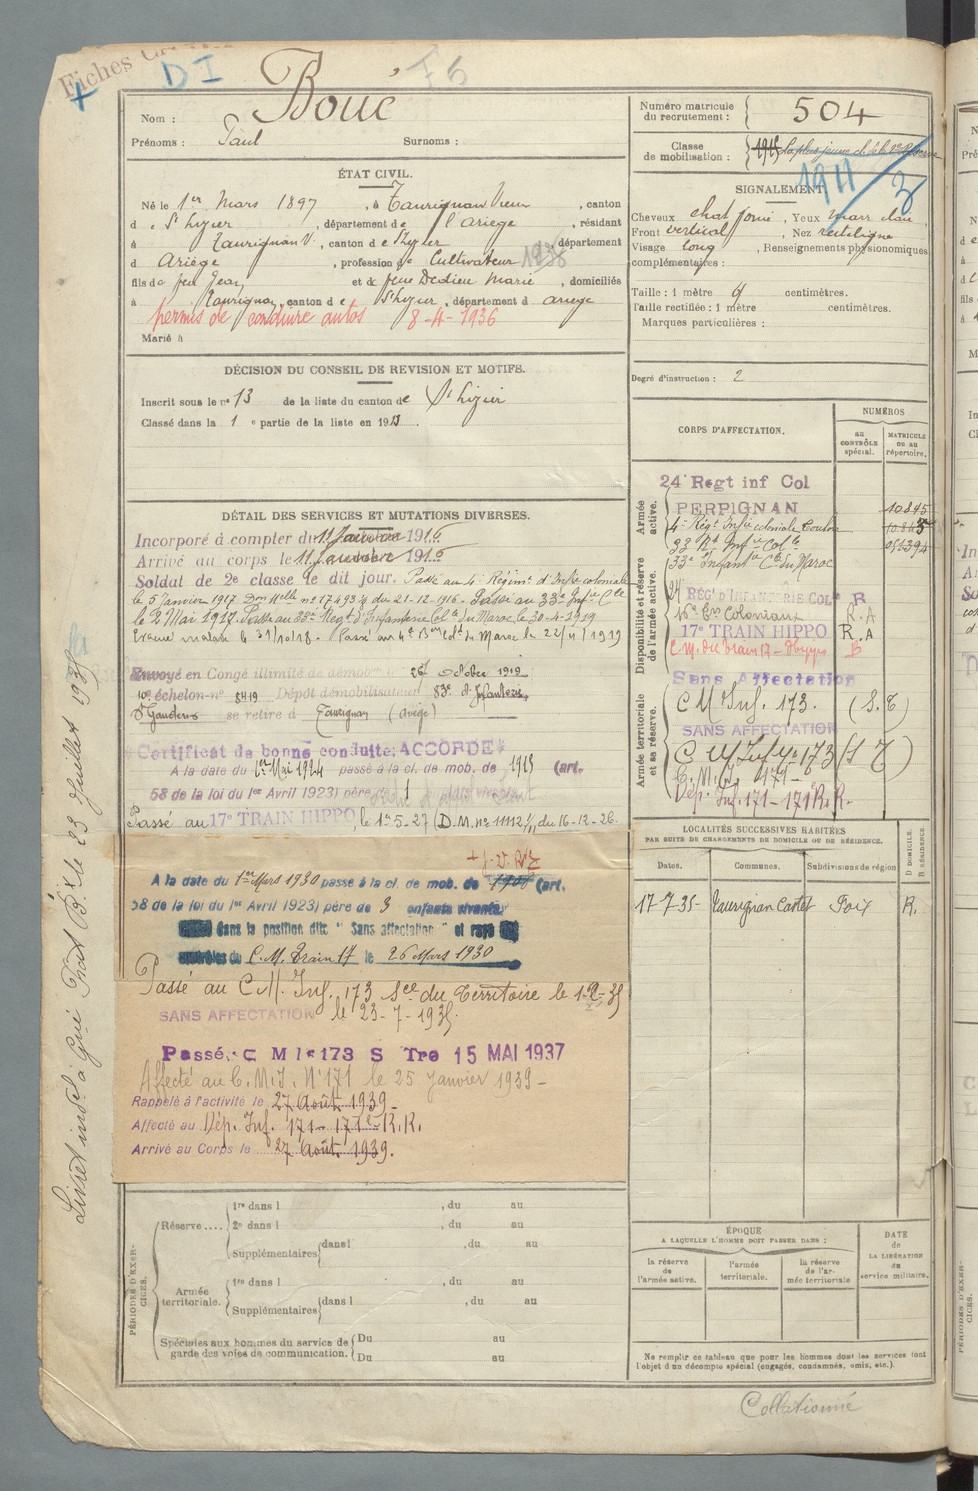 Fiches
DI
F6
Nom : Bouè
Prénoms : Paul Surnoms :
ÉTAT CIVIL.
Né le 1er Mars 1897, à Taurignan Vieux, canton
d e St Lizier, département de l'Ariège, résidant
à Taurignan V., canton d e St Lizier département
d Ariège, profession de Cultivateur 1938
fils de feu Jean et de feue Dedieu Marie, domiciliés
à Taurignan, canton d e St Lizier, département d Ariège
permis de conduire autos 8-4-1936
Marié à
DÉCISION DU CONSEIL DE REVISION ET MOTIFS.
Inscrit sous le no 13 de la liste du canton de St Lizier
Classé dans la 1 e partie de la liste en 191
DÉTAIL DES SERVICES ET MUTATIONS DIVERSES.
Incorporé à compter du 11 1916
Arrivé au corps le 11 1916
Soldat de 2e classe le dit jour. Passé au 4e Régimt d'Infie coloniale
le 5 Janvier 1917 Don Melle no 17493 du 21-12-1916. Passé au 33e Infie Cle
le 2 Mai 1917. Passé au 33e Régt d'Infanterie Colle du Maroc le 30-4-1919
le 31/10/18. Passé au 4e Bon Col. du Maroc le 22/4/1919
Envoyé en Congé illimité de démob 26 Octobre 1919
10e échelon-no 8419 Dépôt démobilisateur 83e d'Infanterie
St Gaudens se retire à Taurignan (Ariège)
Certificat de bonne conduite: ACCORDÉ
A la date du 1er Mai 1924 passé à la cl. de mob. de 1915 (art.
58 de la loi du 1er Avril 1923) père de 1
Passé au 17e TRAIN HIPPO, le 1-5-27 (D.M. no 11112 1/11 du 16-12-26.
A la date du 1er Mars 1930 passé à la cl. de mob. de 1908 (art.
58 de la loi du 1er Avril 1923) père de 3 enfants vivants
dans la position dite "Sans affectation" et rayé
contrôles du C.M. Train 17 le 26 Mars 1930
Passé au C M. Inf. 173 Sce du Territoire le
SANS AFFECTATION le 23-7-1935
Passé. C M I 173 S Tre 15 MAI 1937
Affecté au C.M.I. No 171 le 25 Janvier 1939-
Rappelé à l'activité le 27 Août 1939-
Affecté au Dép. Inf. 171-171e R.R.
Arrivé au Corps le 27 Août 1939.
Livret indel à Gui Trait B.x le 23 Juillet 1935
PÉRIODES D'EXERCICES.
Réserve....
1re dans l , du au
2e dans l , du au
Supplémentaires dans l , du au
Armée territoriale.
1re dans l , du au
Supplémentaires dans l , du au
Spéciales aux hommes du service de garde des voies de communication.
Du au
Du au
Numéro matricule du recrutement : 504
Classe de mobilisation : 1915 la plus jeune de la 2e Réserve
1911
SIGNALEMENT.
Cheveux chat foncé, Yeux marr clair
Front vertical, Nez rectiligne
Visage long, Renseignements physionomiques
complémentaires :
Taille : 1 mètre centimètres.
Taille rectifiée : 1 mètre centimètres.
Marques particulières :
Degré d'instruction : 2
CORPS D'AFFECTATION.
NUMÉROS
au CONTRÔLE spécial.
MATRICULE ou au répertoire.
Armée active.
24e Regt inf Col
PERPIGNAN 10845
4e Régt Infie coloniale Toulon
33e Rt Infie Colle
33e Infantie Cle du Maroc
Disponibilité et réserve de l'armée active.
24e RÉGt D'INFANTERIE COLe R
Coloniaux R.A
17e TRAIN HIPPO R.A
C.M. du Train 17 B
Sans Affectation
Armée territoriale et sa réserve.
C M Inf. 173. (S.T)
SANS AFFECTATION
C M Inf 173 (S T)
C.M.I. 171-
Dép. Inf. 171-171 R.R.
LOCALITÉS SUCCESSIVES HABITÉES
PAR SUITE DE CHANGEMENTS DE DOMICILE OU DE RÉSIDENCE.
Dates. Communes. Subdivisions de région D DOMICILE. R RÉSIDENCE
17-7-35- Taurignan Castet Foix R.
ÉPOQUE
A LAQUELLE L'HOMME DOIT PASSER DANS :
la réserve de l'armée active.
l'armée territoriale.
la réserve de l'armée territoriale
DATE de LA LIBÉRATION du service militaire.
Ne remplir ce tableau que pour les hommes dont les services font
l'objet d'un décompte spécial (engagés, condamnés, omis, etc.).
Collationné